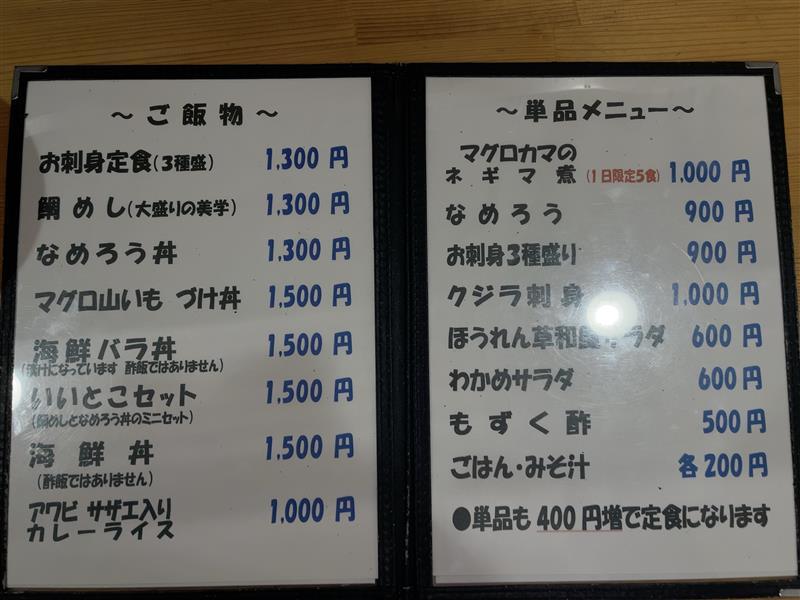 ～ご飯物～
お刺身定食(3種盛) 1,300円
鯛めし(大盛りの美学) 1,300円
なめろう丼 1,300円
マグロ山いもづけ丼 1,500円
海鮮バラ丼 1,500円
(漬けになっています 酢飯ではありません)
いいとこセット 1,500円
(鯛めしとなめろう丼のミニセット)
海鮮丼 1,500円
(酢飯ではありません)
アワビ サザエ入り
カレーライス 1,000円
～単品メニュー～
マグロカマの
ネギマ煮(1日限定5食) 1,000円
なめろう 900円
お刺身3種盛り 900円
クジラ刺身 1,000円
ほうれん草和風サラダ 600円
わかめサラダ 600円
もずく酢 500円
ごはん・みそ汁 各200円
●単品も400円増で定食になります